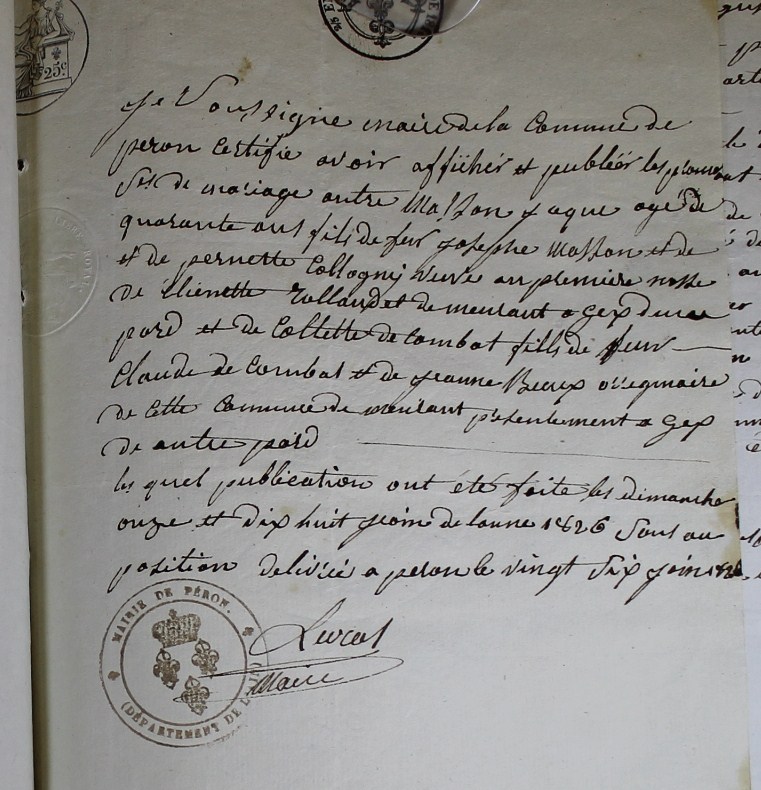 25c
Je Soussigne maire de la Commune de
peron Certifie avoir affichér et publéér les prome
Ses de mariage entre Masson jaque agé de
quarante ans fils de feu josephe Masson et de
et de pernette Collogny veuve an premiere nosse
de Elienette Rolland et demeurant a gex dune
pard et de Collette de Combat fills de feu
Claude de Combat et de jeanne Beaux oregmaire
de Cette Commune de meurant présentement a gex
de autre pard
les quel publication ont été faite les dimanche
onze et dix huit join de lanne 1826 Sans au
position delivréé a peron le vingt Six join
Maire
MAIRIE DE PÉRON.
(DÉPARTEMENT DE L'AIN)